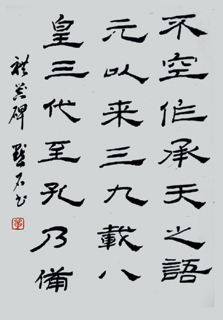 不空作承天之語
元以来三九載八
皇三代至孔乃備
禮器碑 石书